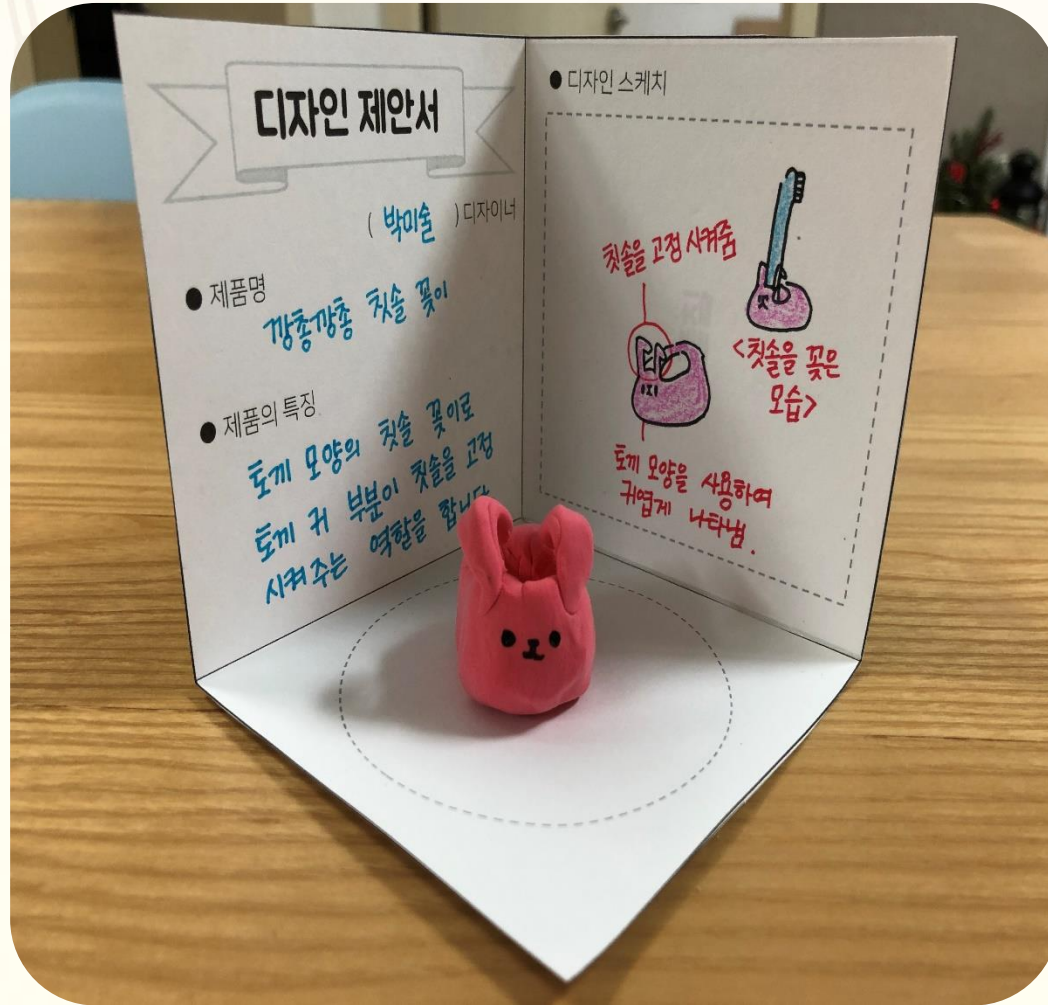 디자인 제안서
( 박미술 ) 디자이너
● 제품명
깡총깡총 칫솔 꽂이
● 제품의 특징
토끼 모양의 칫솔 꽂이로
토끼 귀 부분이 칫솔을 고정
시켜주는 역할을 합니다
● 디자인 스케치
칫솔을 고정 시켜줌
<칫솔을 꽂은
모습>
토끼 모양을 사용하여
귀엽게 나타냄.